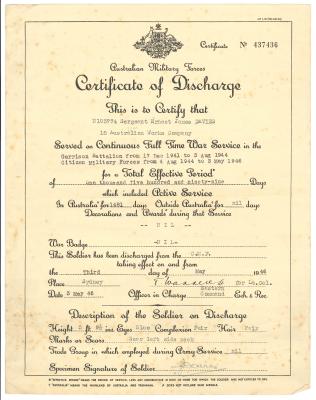 Certificate No 437436
Australian Military Forces
Certificate of Discharge
This is to Certify that
Sergeant Ernest James DAVIES
15 Australian Works Company
Served on Continuous Full Time War Service in the
Garrison Battalion from 17 Dec 1941 to 3 Aug 1944
Citizen Military Forces from 4 Aug 1944 to 3 May 1946
for a Total Effective Period*
of One thousand five hundred and ninety-nine Days
which included Active Service
In Australia† for 1481 days Outside Australia† for nil days
Decorations and Awards during that Service
-- NIL --
War Badge -NIL-
This Soldier has been discharged from the C.M.F.
taking effect on and from
the Third day of May 1946
Place Sydney for Lt.Col.
Date 3 May 46 Officer in Charge Eastern Command Ech & Rec
Description of the Soldier on Discharge
Height 5 ft. ins Eyes Blue Complexion Fair Hair Fair
Marks or Scars Scar left side neck
Trade Group in which employed during Army Service Nil
Specimen Signature of Soldier